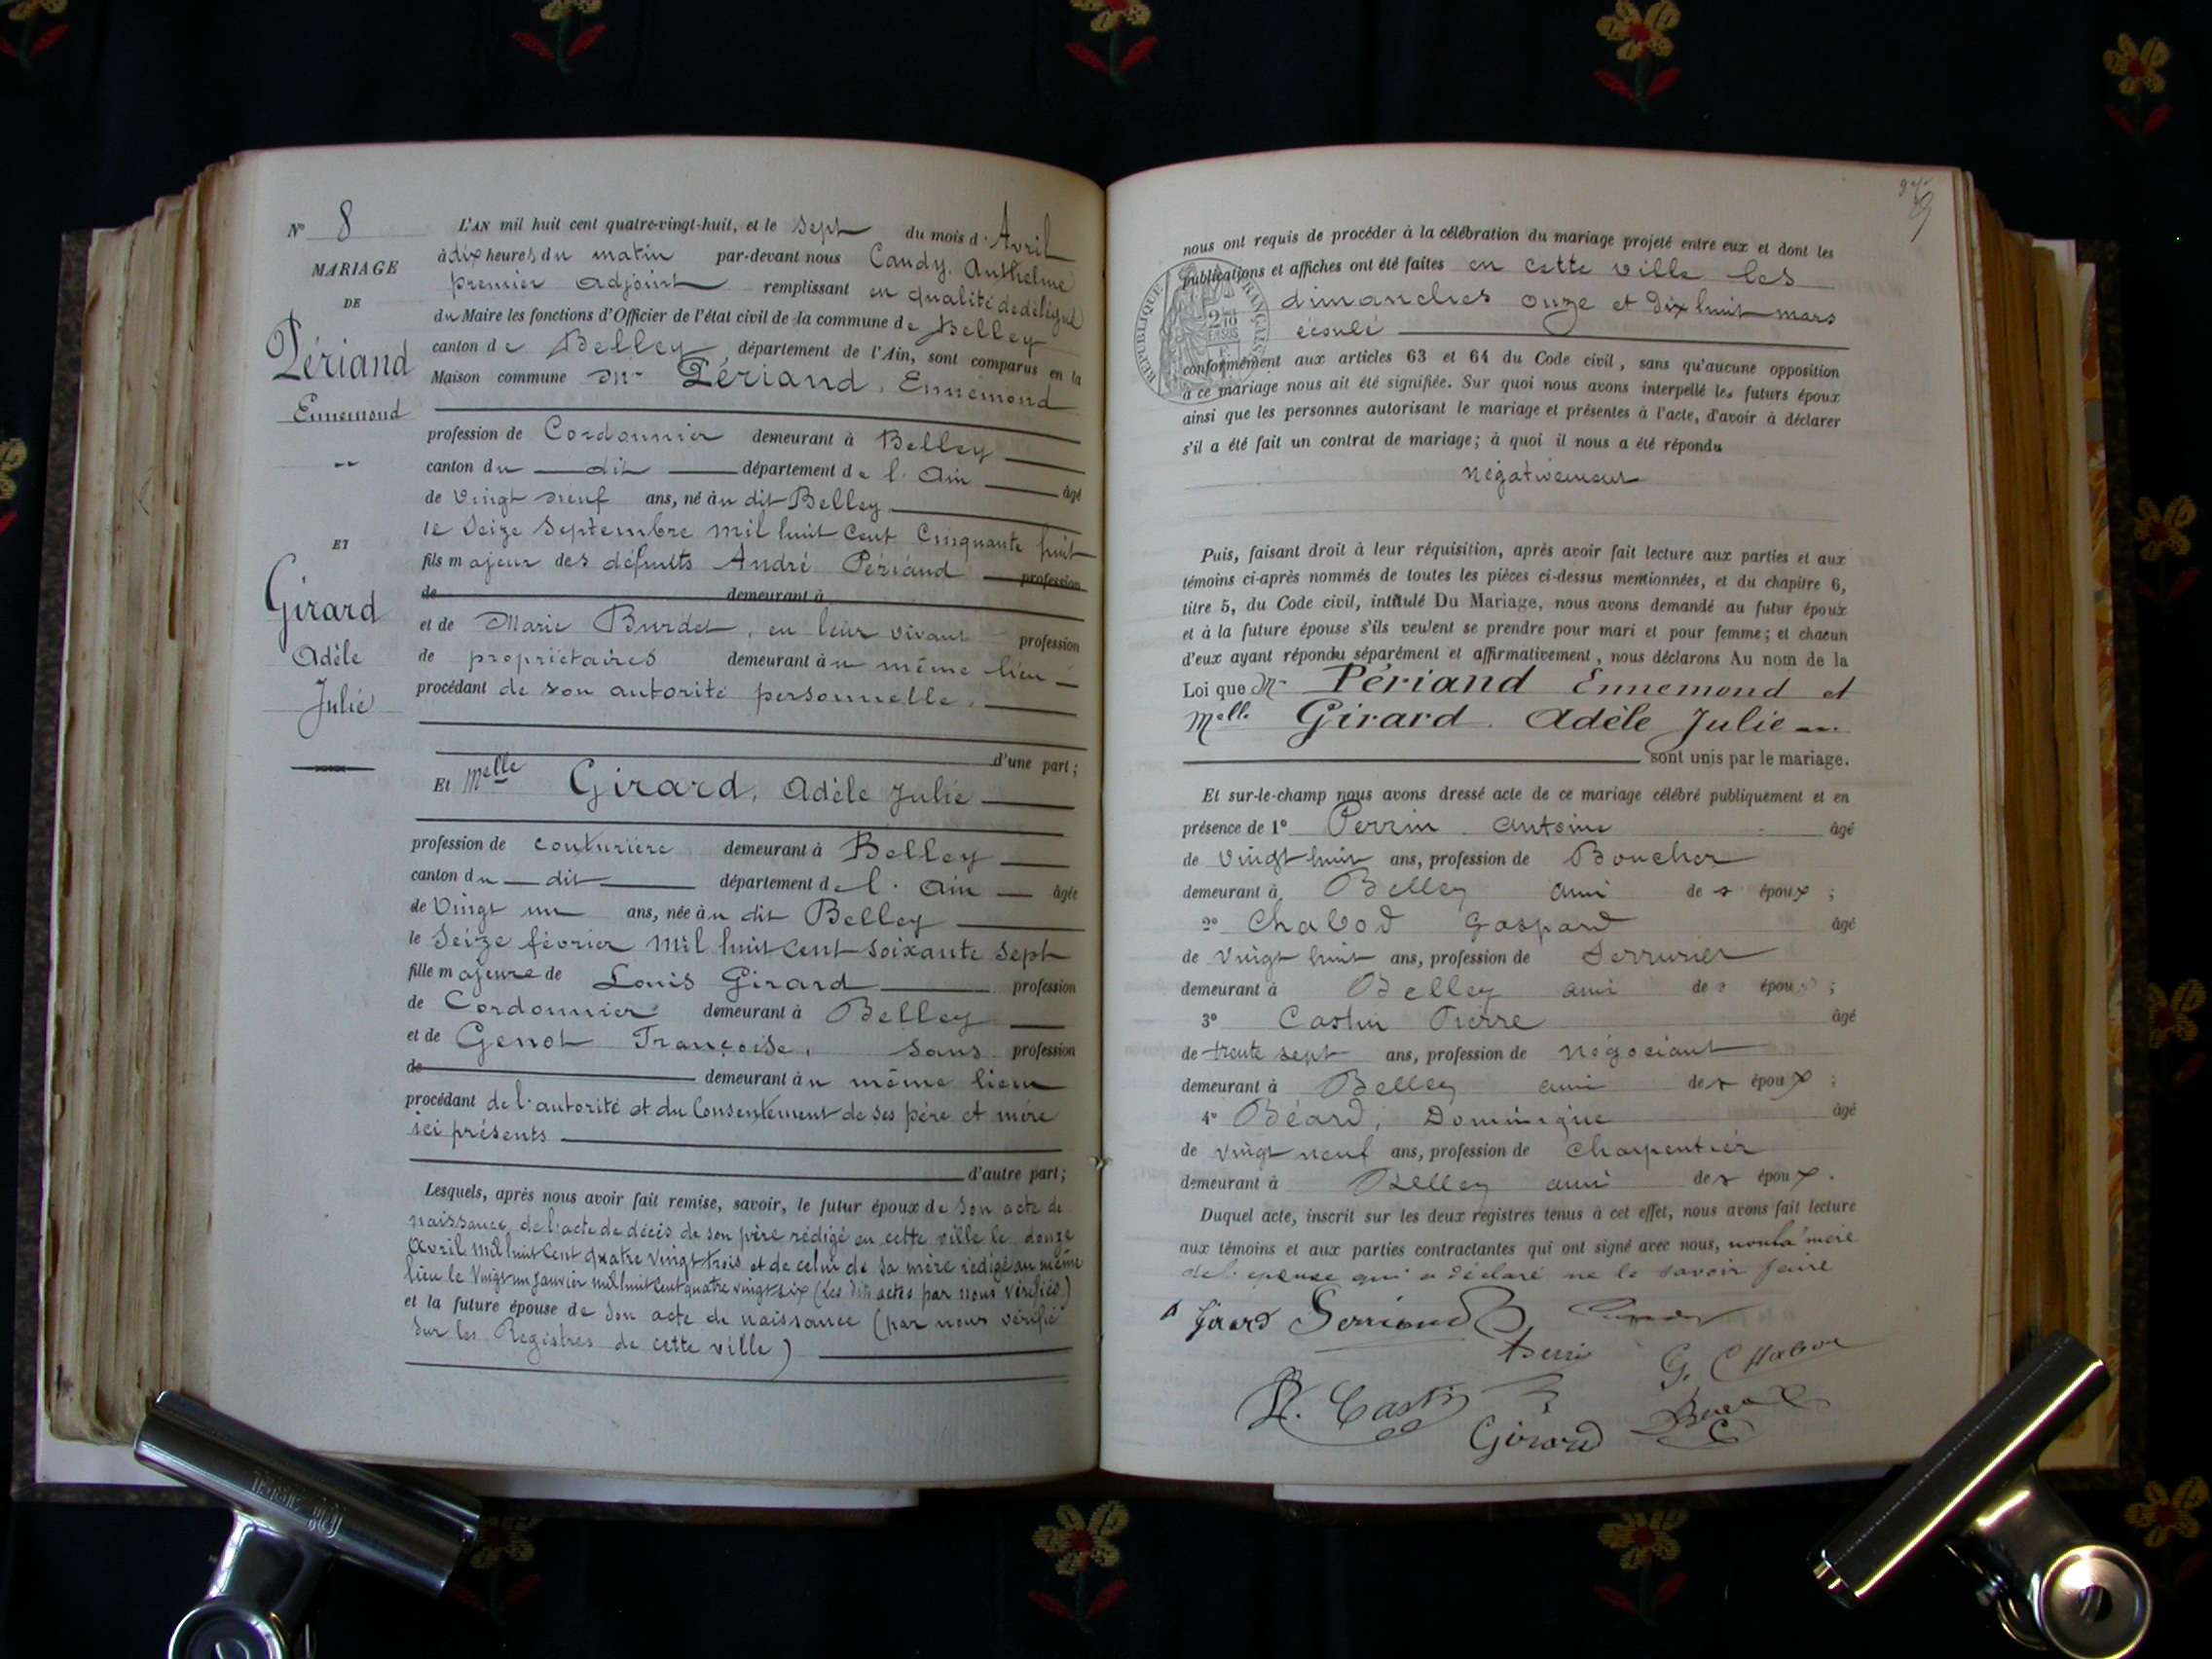 N° 8
MARIAGE
DE
Périand
Ennemond
ET
Girard
Adèle
Julie
L'AN mil huit cent quatre-vingt-huit, et le sept du mois d'Avril
à dix heures du matin par-devant nous Candy, Anthelme
premier adjoint remplissant en qualité de délégué
du Maire les fonctions d'Officier de l'état civil de la commune de Belley
canton de Belley, département de l'Ain, sont comparus en la
Maison commune Mr Périand, Ennemond
profession de Cordonnier demeurant à Belley
canton du dit département de l'Ain âgé
de vingt neuf ans, né au dit Belley
le seize septembre mil huit cent cinquante huit
fils majeur des défunts André Périand profession
de demeurant à
et de Marie Burdet, en leur vivant profession
de propriétaires demeurant au même lieu
procédant de son autorité personnelle,
d'une part;
Et Melle Girard, Adèle Julie
profession de couturière demeurant à Belley
canton du dit département de l'Ain âgée
de vingt un ans, née au dit Belley
le seize février mil huit cent soixante sept
fille majeure de Louis Girard profession
de Cordonnier demeurant à Belley
et de Genot Françoise, sans profession
de demeurant au même lieu
procédant de l'autorité et du consentement de ses père et mère
ici présents
d'autre part;
Lesquels, après nous avoir fait remise, savoir, le futur époux de son acte de
naissance, de l'acte de décès de son père rédigé en cette ville le douze
avril mil huit cent quatre vingt trois et de celui de sa mère rédigé au même
lieu le vingt un janvier mil huit cent quatre vingt six (les dits actes par nous vérifiés)
et la future épouse de son acte de naissance (par nous vérifié
sur les Registres de cette ville)
nous ont requis de procéder à la célébration du mariage projeté entre eux et dont les
publications et affiches ont été faites en cette ville les
dimanches onze et dix huit mars
écoulé
RÉPUBLIQUE FRANÇAISE
2/10 EN SUS
conformément aux articles 63 et 64 du Code civil, sans qu'aucune opposition
à ce mariage nous ait été signifiée. Sur quoi nous avons interpellé les futurs époux
ainsi que les personnes autorisant le mariage et présentes à l'acte, d'avoir à déclarer
s'il a été fait un contrat de mariage; à quoi il nous a été répondu
négativement
Puis, faisant droit à leur réquisition, après avoir fait lecture aux parties et aux
témoins ci-après nommés de toutes les pièces ci-dessus mentionnées, et du chapitre 6,
titre 5, du Code civil, intitulé Du Mariage, nous avons demandé au futur époux
et à la future épouse s'ils veulent se prendre pour mari et pour femme; et chacun
d'eux ayant répondu séparément et affirmativement, nous déclarons Au nom de la
Loi que Mr Périand Ennemond et
Melle Girard. Adèle Julie
sont unis par le mariage.
Et sur-le-champ nous avons dressé acte de ce mariage célébré publiquement et en
présence de 1° Perrin Antoine âgé
de vingt huit ans, profession de Boucher
demeurant à Belley ami des époux;
2° Chabod Gaspard âgé
de vingt huit ans, profession de Serrurier
demeurant à Belley ami des époux;
3° Castin Pierre âgé
de trente sept ans, profession de négociant
demeurant à Belley ami des époux;
4° Béard, Dominique âgé
de vingt neuf ans, profession de charpentier
demeurant à Belley ami des époux.
Duquel acte, inscrit sur les deux registres tenus à cet effet, nous avons fait lecture
aux témoins et aux parties contractantes qui ont signé avec nous, non la mère
de l'épouse qui a déclaré ne le savoir faire
Girard
G. Chabod
Girard